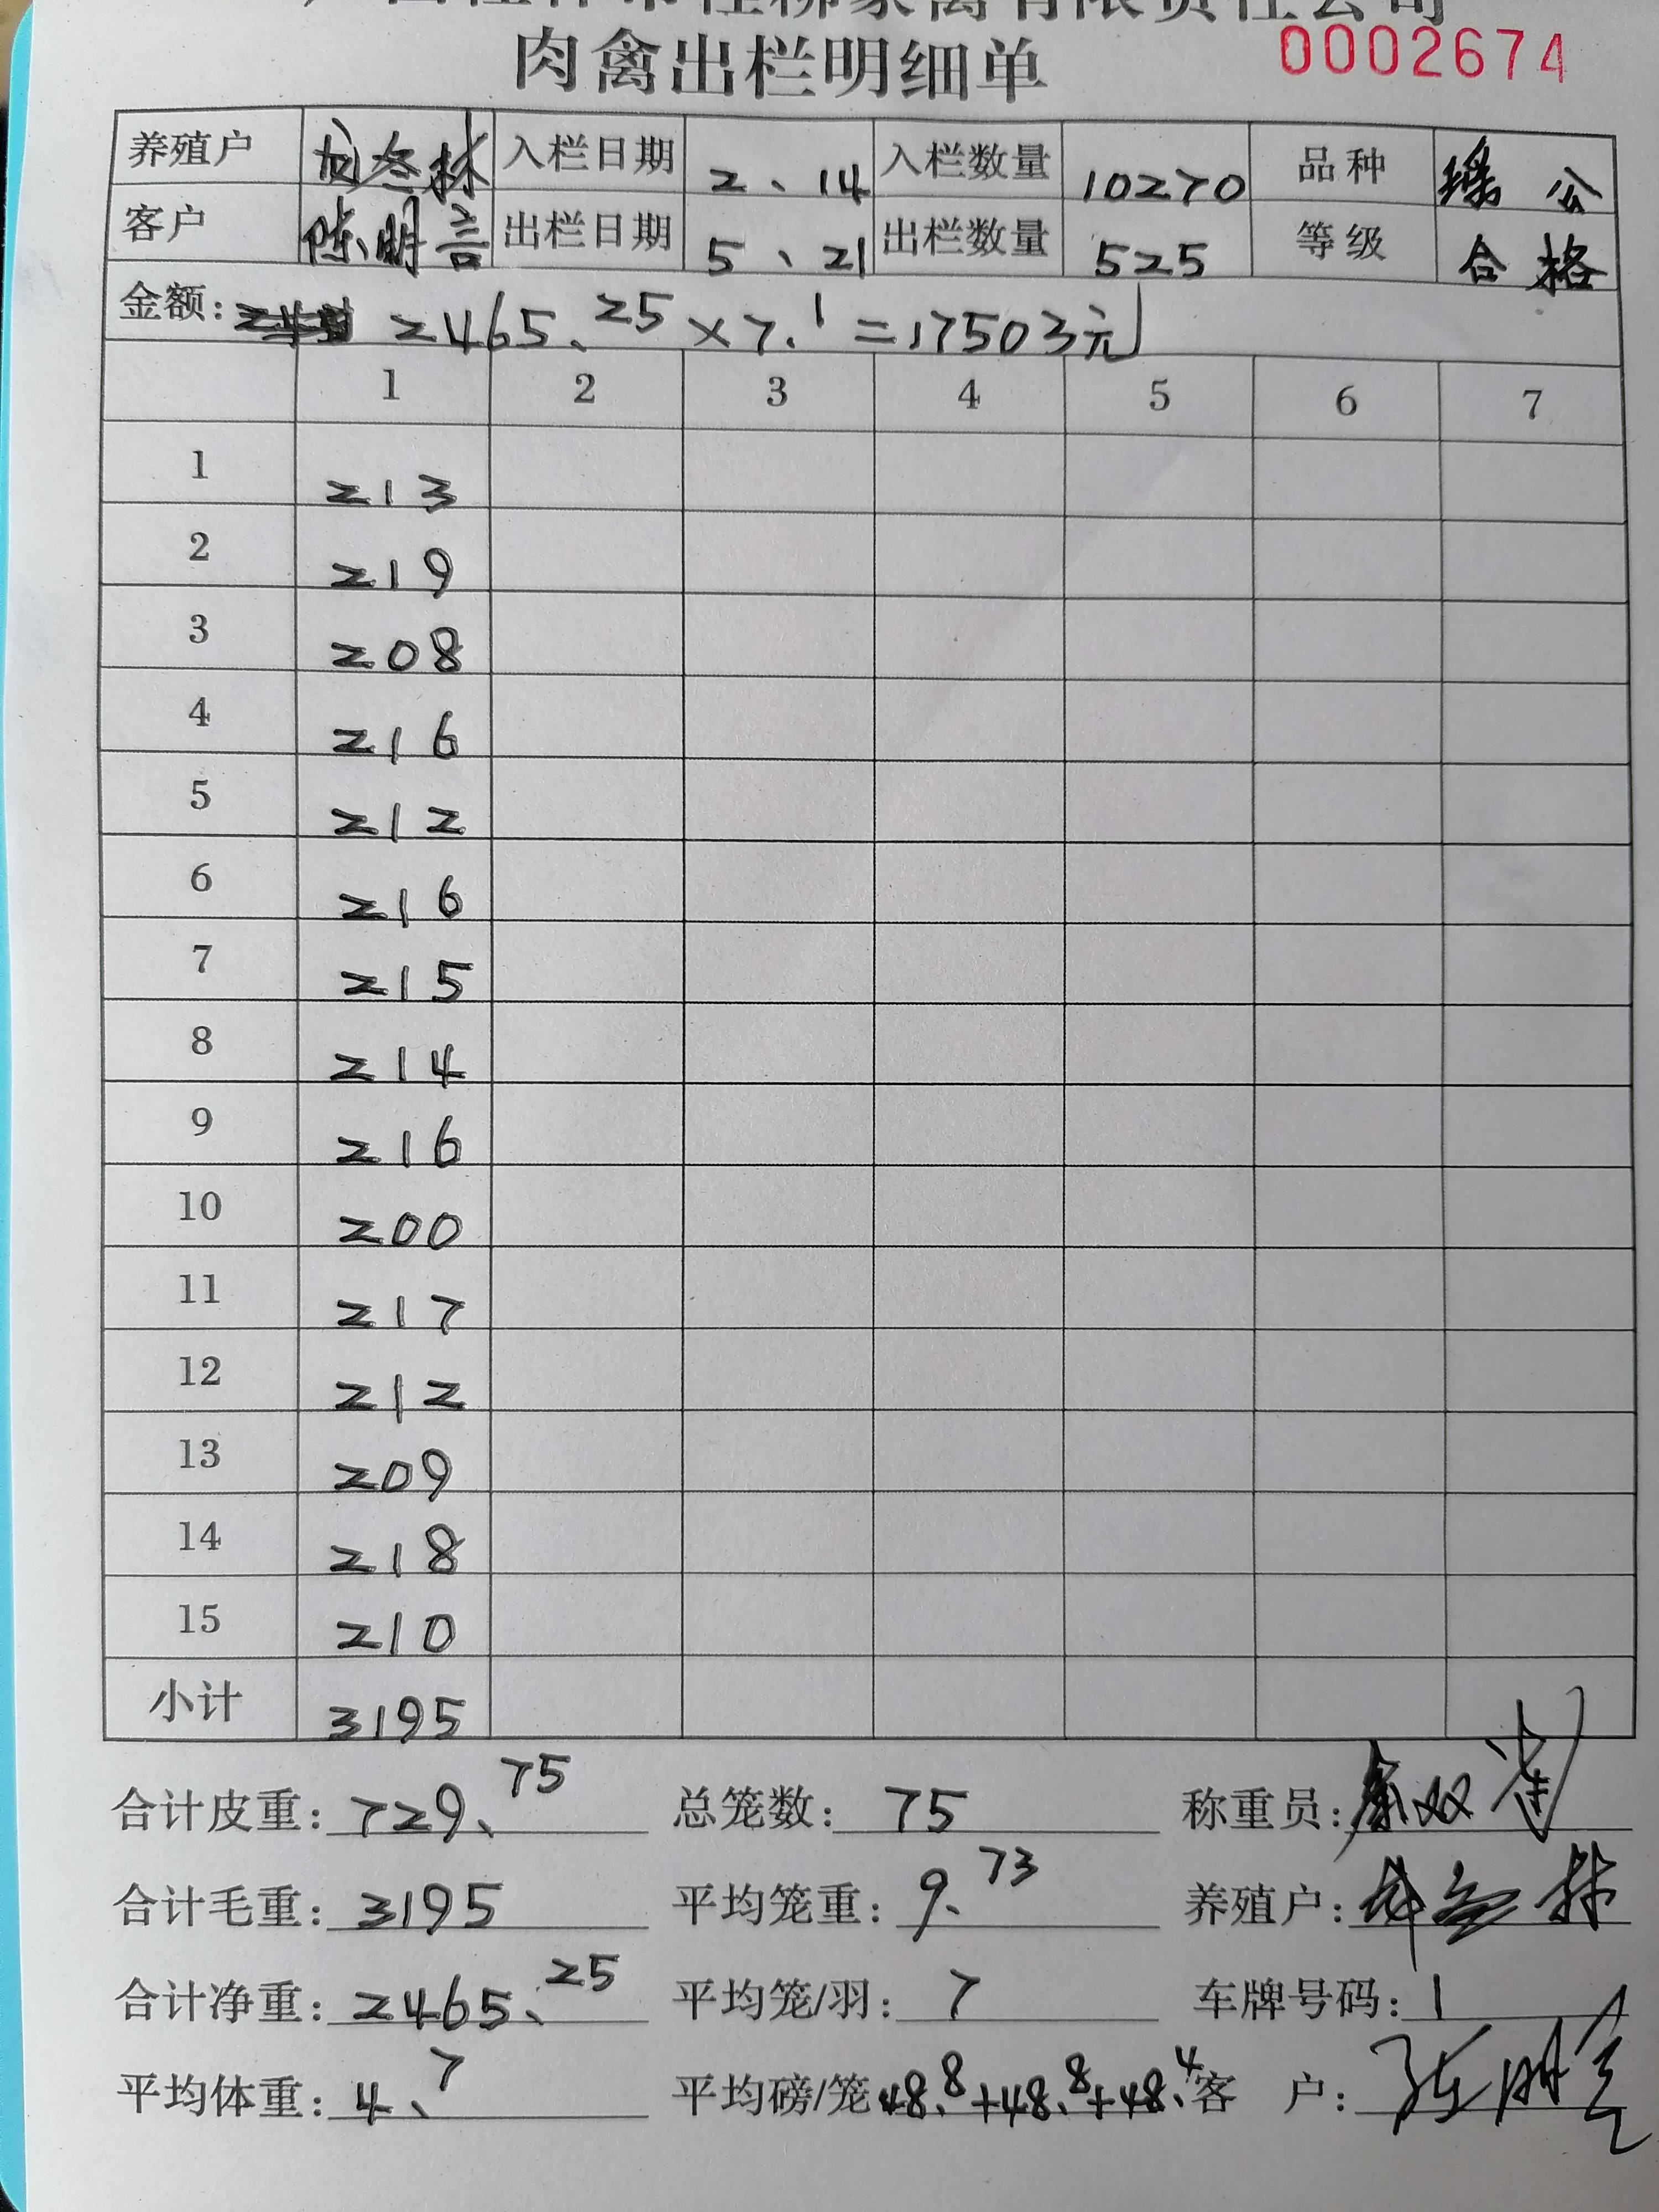 桂柳家禽有限责任公司
肉禽出栏明细单 0002674
养殖户 入栏日期 2、14 入栏数量 10270 品种 瑶公
客户 陈明言 出栏日期 5、21 出栏数量 525 等级 合格
金额: 2465.25×7.1=17503元
1 2 3 4 5 6 7
1 213
2 219
3 208
4 216
5 212
6 216
7 215
8 214
9 216
10 200
11 217
12 212
13 209
14 218
15 210
小计 3195
合计皮重: 729.75 总笼数: 75 称重员:
合计毛重: 3195 平均笼重: 9.73 养殖户:
合计净重: 2465.25 平均笼/羽: 7 车牌号码: 1
平均体重: 4.7 平均磅/笼 48.8+48.8+48.4 客 户: 陈明言